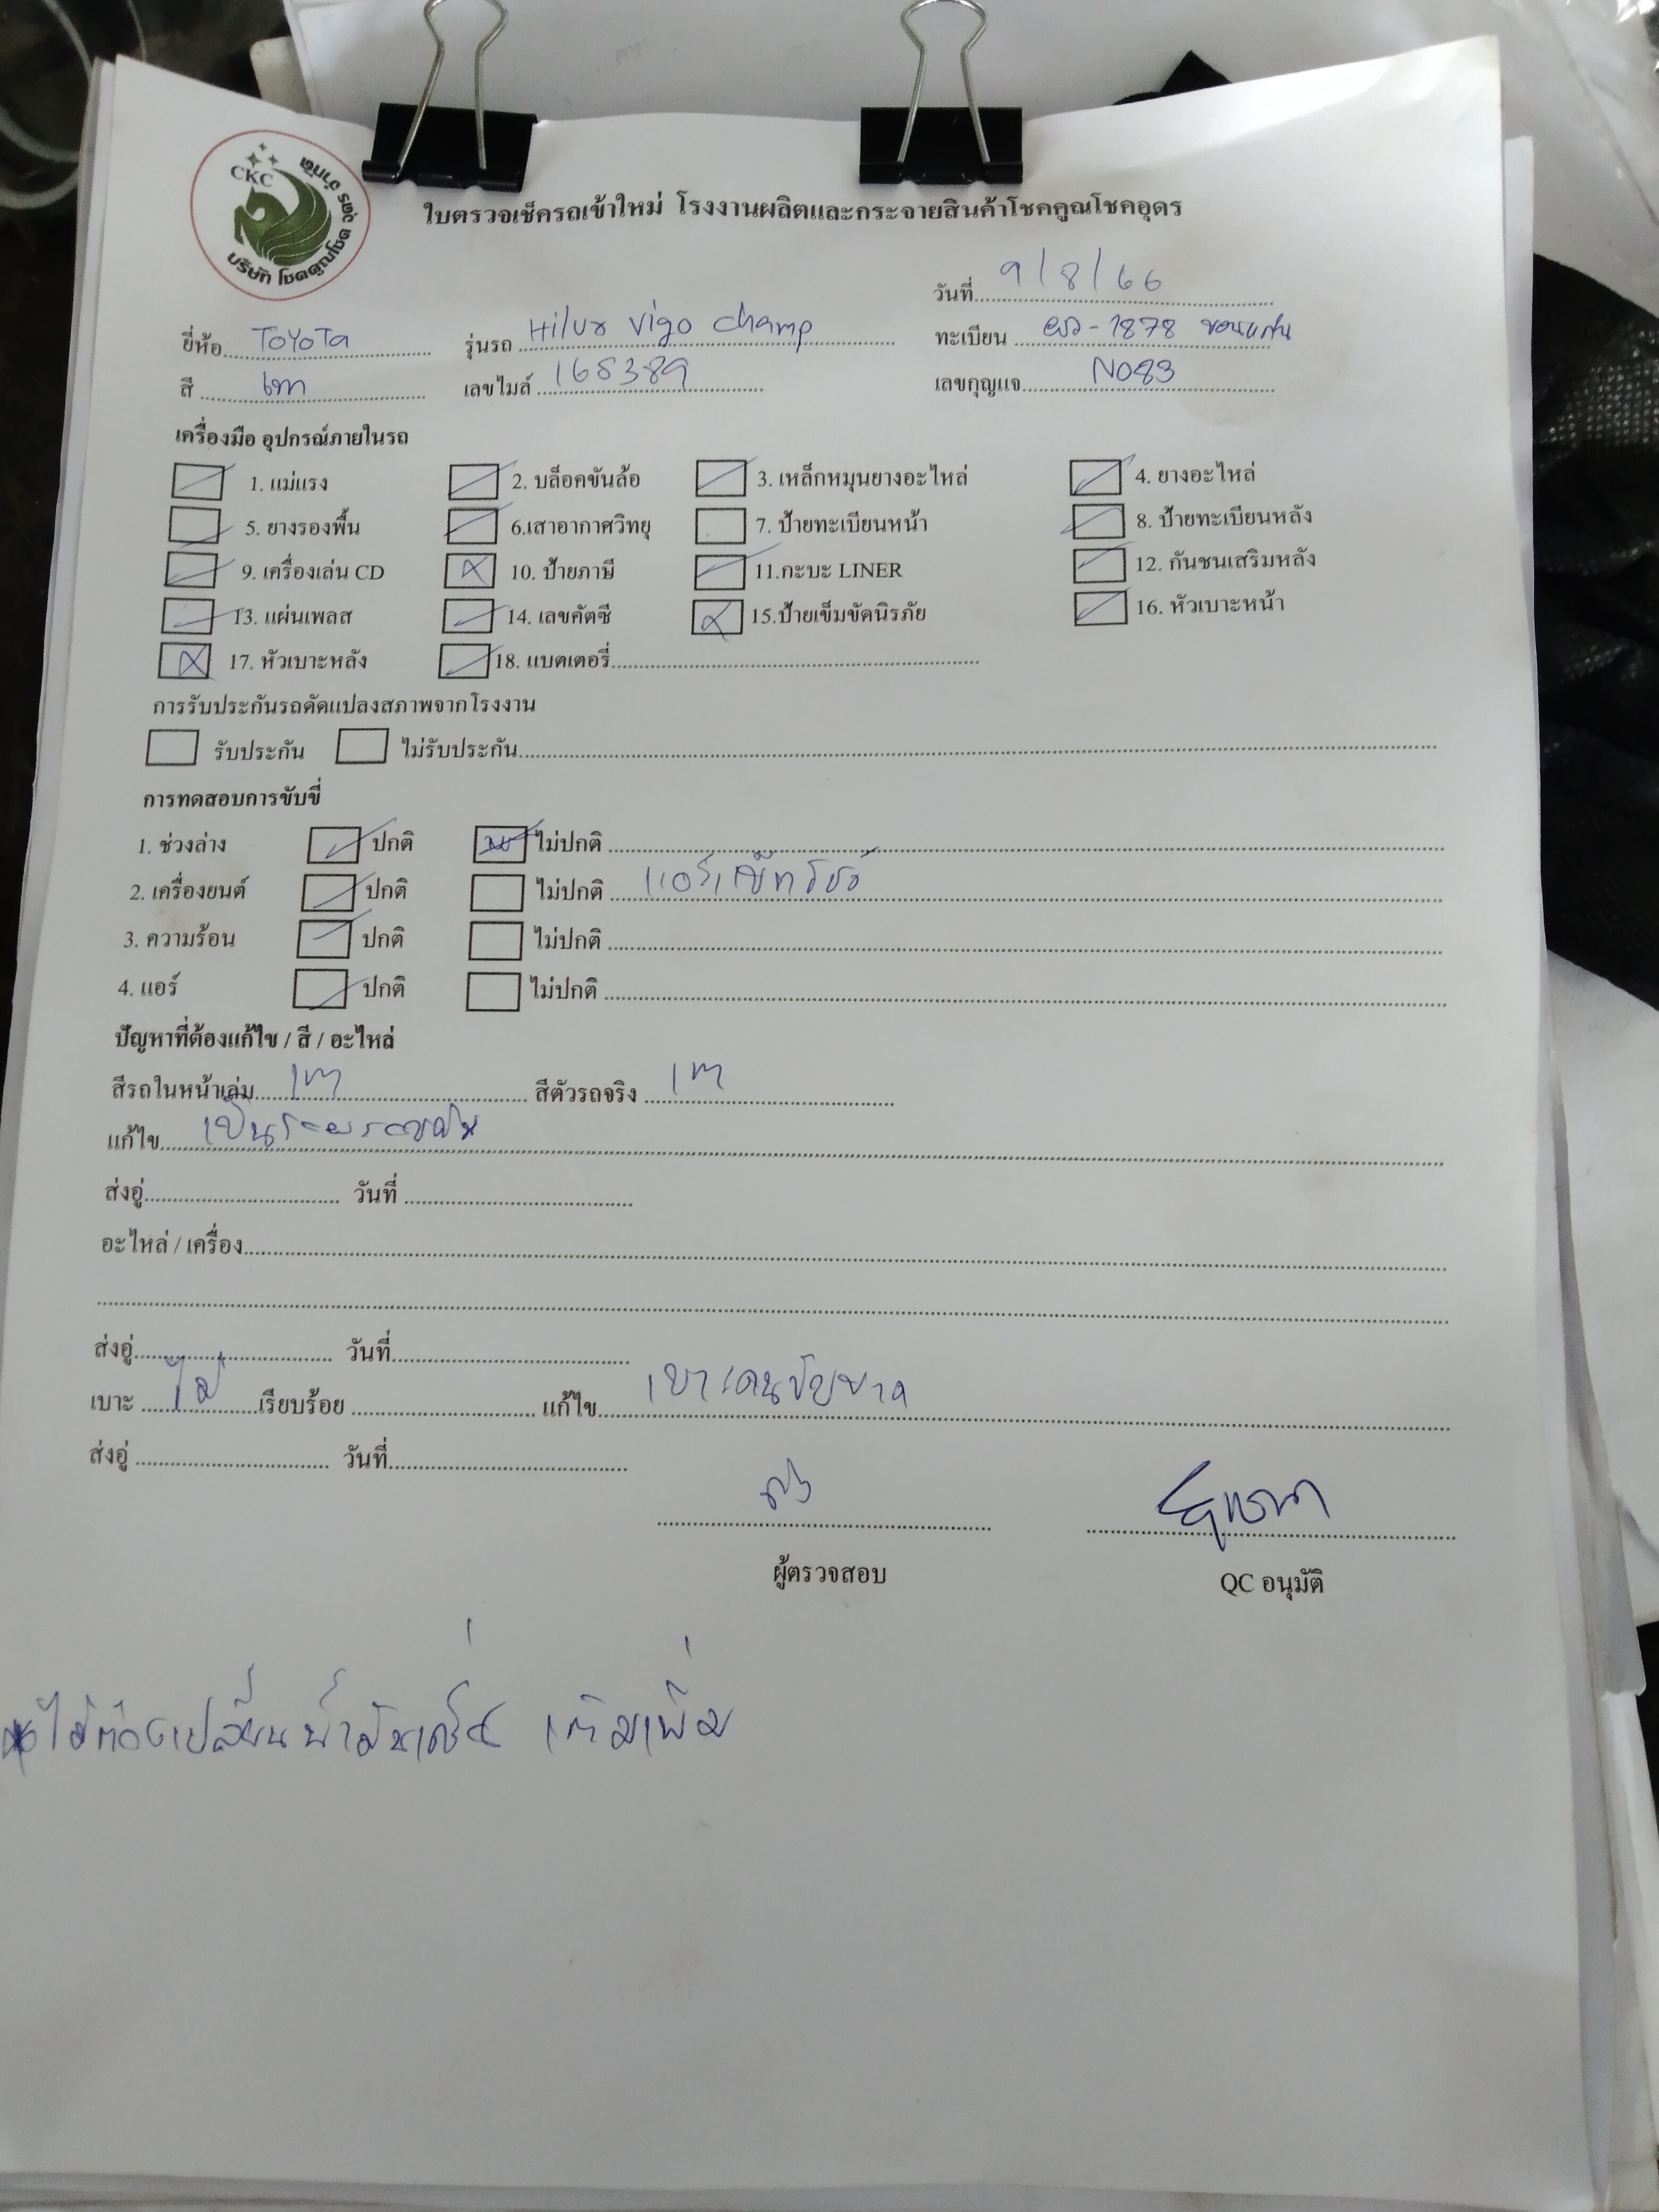 CKC
บริษัท โชคคูณโชค อุดร จำกัด
ใบตรวจเช็ครถเข้าใหม่ โรงงานผลิตและกระจายสินค้าโชคคูณโชคอุดร
วันที่ 9/8/66
ยี่ห้อ TOYOTA รุ่นรถ Hilux Vigo champ ทะเบียน -1878 ขอนแก่น
สี เทา เลขไมล์ 165389 เลขกุญแจ N083
เครื่องมือ อุปกรณ์ภายในรถ
1. แม่แรง 2. บล็อคขันล้อ 3. เหล็กหมุนยางอะไหล่ 4. ยางอะไหล่
5. ยางรองพื้น 6.เสาอากาศวิทยุ 7. ป้ายทะเบียนหน้า 8. ป้ายทะเบียนหลัง
9. เครื่องเล่น CD 10. ป้ายภาษี 11.กะบะ LINER 12. กันชนเสริมหลัง
13. แผ่นเพลส 14. เลขคัตซี 15.ป้ายเข็มขัดนิรภัย 16. หัวเบาะหน้า
17. หัวเบาะหลัง 18. แบตเตอรี่
การรับประกันรถดัดแปลงสภาพจากโรงงาน
รับประกัน ไม่รับประกัน
การทดสอบการขับขี่
1. ช่วงล่าง ปกติ ไม่ปกติ
2. เครื่องยนต์ ปกติ ไม่ปกติ
3. ความร้อน ปกติ ไม่ปกติ
4. แอร์ ปกติ ไม่ปกติ
ปัญหาที่ต้องแก้ไข / สี / อะไหล่
สีรถในหน้าเล่ม เทา สีตัวรถจริง เทา
แก้ไข เป็นรอยรอบคัน
ส่งอู่ วันที่
อะไหล่ / เครื่อง
ส่งอู่ วันที่
เบาะ ไม่ เรียบร้อย แก้ไข
ส่งอู่ วันที่
ผู้ตรวจสอบ QC อนุมัติ
ไม่ต้องเปลี่ยนน้ำมันเครื่อง เติมเพิ่ม